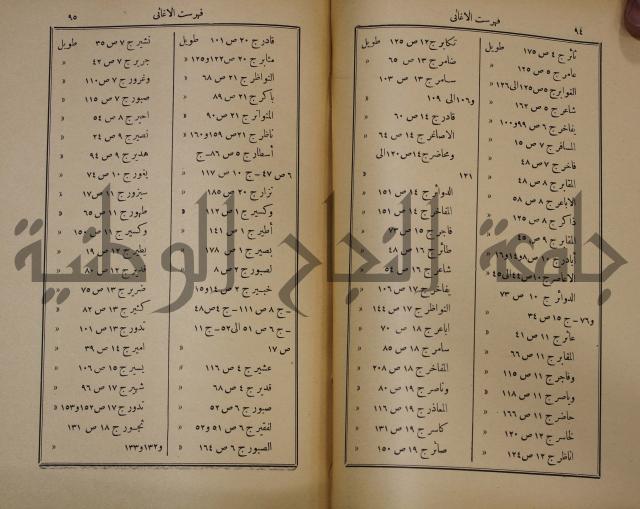 ٩٤
فهرست الاغانى
ثأثر ج ٤ ص ١٧٥ طويل
عامر ج ٥ ص ١٢٥ »
الغوابر ج٥ ص١٢٥الى١٢٦ »
شاعر ج ٥ ص ١٦٢ »
يفاخر ج ٦ ص ٩٩و١٠٠ »
المسافر ج ٧ ص ١٥ »
فاخر ج ٧ ص ٤٨ »
المقابر ج ٨ ص ٤٨ »
الاباعر ج ٨ ص ٥٨ »
ذاكر ج ٨ ص ١٢٥ »
المقابر ج ٩ ص ٤٥ »
الدوائر ج ١٠ ص ٧٣
و٧٦ــ ج ١٥ ص ٣٤ »
عاثر ج ١١ ص ٤١ »
المقابر ج ١١ ص ٦٦ »
وفاجر ج ١١ ص ١١٥ »
وياصر ج ١١ ص ١١٨ »
حاضر ج ١١ ص ١٦٦ »
لخاسر ج ١٢ ص ١٢٠ »
اناظر ج ١٢ ص ١٢٤ »
تكابر ج ١٢ ص ١٢٥ طويل
ضامر ج ١٣ ص ٦٥ »
سامر ج ١٣ ص ١٠٣
و١٠٦الى ١٠٩ »
قادر ج ١٤ ص ٦٠ »
الاصاغر ج ١٤ ص ٦٤ »
ومحاضر ج١٤ ص١٢٠الى
١٢١ »
الدوائر ج ١٤ ص ١٥١ »
المفاخر ج ١٤ ص ١٥١ »
فاجر ج ١٥ ص ٧٣ »
طائر ج ١٦ ص ٤٨ »
شاعر ج ١٦ ص ٥٤ »
يفاخر ج ١٧ ص ١٠٦ »
النواظر ج ١٧ ص ١٤٤ »
اباعر ج ١٨ ص ٧٠ »
سامر ج ١٨ ص ٨٥ »
المفاخر ج ١٨ ص ٢٠٨ »
وناصر ج ١٩ ص ٨٠ »
المعاذر ج ١٩ ص ١١٦ »
كاسر ج ١٩ ص ١٣١ »
صائر ج ١٩ ص ١٥٠ »
فهرست الاغانى
٩٥
قادر ج ٢٠ ص ١٠١ طويل
مثابر ج ٢٠ ص١٢٢و١٢٥ »
النواظر ج ٢١ ص ٦٨ »
باكر ج ٢١ ص ٨٩ »
المتواتر ج ٢١ ص ٩٠ »
ناظر ج ٢١ ص١٥٩و١٦٠ »
أسطار ج ٥ ص ٨٦ــ ج
٦ ص ٤٧ــ ج ١٠ ص ١١٧ »
نزار ج ٢٠ ص ١٨٥ »
وكسير ج ١ ص ١١٢ »
أطير ج ١ ص ١٤١ »
بصير ج ١ ص ١٧٨ »
لصبور ج ٢ ص ٨ »
خبير ج ٢ ص ١٤و١٥
ــ ج ٨ ص ١١١ــ ج ٤ ص٤٨
ــ ج ٦ ص ٥١ الى ٥٢ــ ج ١١
ص ١٧ »
عشير ج ٤ ص ١١٦ »
قدير ج ٤ ص ٦٨ »
صبور ج ٦ ص ٥٢ »
لفقير ج ٦ ص ٥١ و٥٢ »
الصبور ج ٦ ص ١٦٤ »
نشير ج ٧ ص ٣٥ طويل
جرير ج ٧ ص ٤٢ »
وغرور ج ٧ ص ١١٠ »
صبور ج ٧ ص ١١٥ »
اجير ج ٨ ص ٥٤ »
نصير ج ٩ ص ٢٤ »
هدير ج ٩ ص ٩٤ »
يغور ج ١٠ ص ٧٤ »
سيزور ج ١١ ص ١٧ »
طهور ج ١١ ص ٦٥ »
بطير ج ١٢ ص ١٩ »
ضرير ج ١٣ ص ٧٥ »
كثير ج ١٣ ص ٨٢ »
تدور ج ١٣ ص ١٠١ »
امير ج ١٤ ص ٣٩ »
يسير ج ١٥ ص ١٠٦ »
شهير ج ١٧ ص ٩٦ »
تدور ج ١٧ ص١٥٢و١٥٣ »
تجور ج ١٨ ص ١٣١
و١٣٢و١٣٣ »
جامعة النجاح الوطنية